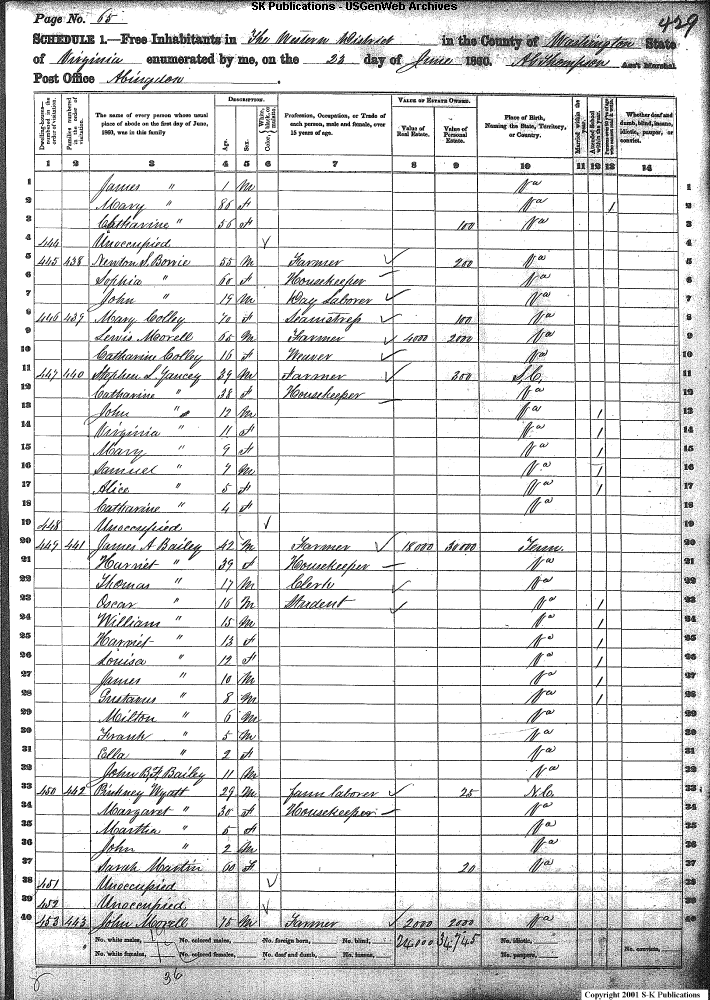 SK Publications - USGenWeb Archives
Page No. 65
429
SCHEDULE 1.—Free Inhabitants in The Western District in the County of Washington State
of Virginia enumerated by me, on the 23 day of June 1860. A G Thompson Ass't Marshal
Post Office Abingdon.
Dwelling-houses—numbered in the order of visitation.
Families numbered in the order of visitation.
The name of every person whose usual place of abode on the first day of June, 1860, was in this family
DESCRIPTION.
Age.
Sex.
Color, White, black, or mulatto.
Profession, Occupation, or Trade of each person, male and female, over 15 years of age.
VALUE OF ESTATE OWNED.
Value of Real Estate.
Value of Personal Estate.
Place of Birth, Naming the State, Territory, or Country.
Married within the year.
Attended School within the year.
Whether deaf and dumb, blind, insane, idiotic, pauper, or convict.
1 2 3 4 5 6 7 8 9 10 11 12 13 14
1 James " 1 M Va 1
2 Mary " 86 f Va / 2
3 Catharine " 56 f 100 Va 3
4 444 Unoccupied ✓ 4
5 445 438 Newton S. Borrie 55 M Farmer ✓ 200 Va 5
6 Sophia " 60 f Housekeeper — Va 6
7 John " 19 M Day Laborer ✓ Va 7
8 446 439 Mary Colley 70 f Seamstress ✓ 100 Va 8
9 Lewis Morell 65 M Farmer ✓ 4000 2000 Va 9
10 Catharine Colley 16 f Weaver ✓ Va 10
11 447 440 Stephen L. Yancey 39 M Farmer ✓ 300 S.C. 11
12 Catharine " 38 f Housekeeper — Va 12
13 John " 12 M Va / 13
14 Virginia " 11 f Va / 14
15 Mary " 9 f Va / 15
16 Samuel " 7 M Va / 16
17 Alice " 5 f Va / 17
18 Catharine " 4 f Va 18
19 448 Unoccupied ✓ 19
20 449 441 James A Bailey 42 M Farmer ✓ 18000 30000 Tenn. 20
21 Harriet " 39 f Housekeeper — Va 21
22 Thomas " 17 M Clerk ✓ Va 22
23 Oscar " 16 M Student ✓ Va / 23
24 William " 15 M Va / 24
25 Harriet " 13 f Va / 25
26 Louisa " 12 f Va / 26
27 James " 10 M Va / 27
28 Gustavus " 8 M Va / 28
29 Milton " 6 M Va 29
30 Frank " 5 M Va 30
31 Ella " 2 f Va 31
32 John B.F. Bailey 11 M Va 32
33 450 442 Pinkney Wyatt 29 M farm laborer ✓ 25 N.C. 33
34 Margaret " 30 f Housekeeper — Va 34
35 Martha " 5 f Va 35
36 John " 2 M Va 36
37 Sarah Martin 60 f 20 Va 37
38 451 Unoccupied ✓ 38
39 452 Unoccupied ✓ 39
40 453 443 John Morell 75 M Farmer ✓ 2000 2000 Va 40
No. white males, No. colored males, No. foreign born, No. blind, 24000 34745 No. idiotic,
No. white females, No. colored females, No. deaf and dumb, No. insane, No. paupers, No. convicts,
36
Copyright 2001 S-K Publications